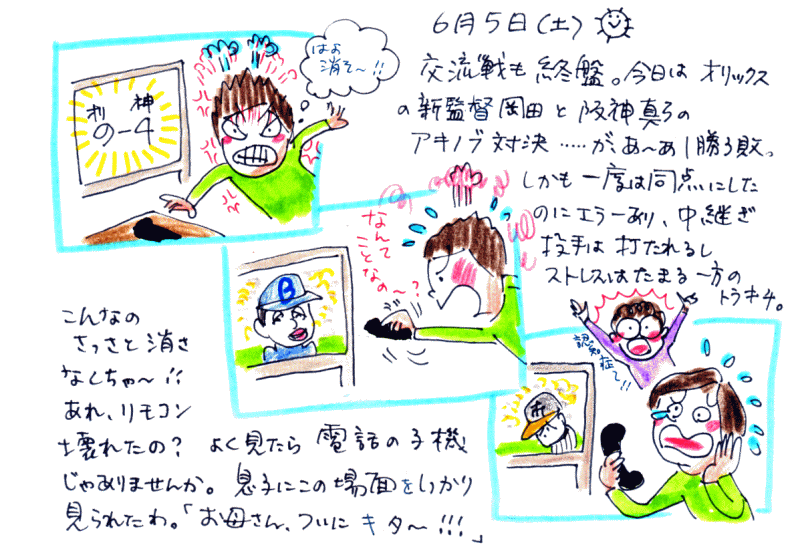 6月5日(土)
交流戦も終盤。今日はオリックス
の新監督岡田と阪神真弓の
アキノブ対決……が、あ〜あ1勝3敗。
しかも一度は同点にした
のにエラーあり、中継ぎ
投手は打たれるし
ストレスはたまる一方の
トラキチ。
はよ
消そ〜!!
オリ 神
9-4
なんて
ことなの〜?
B
認知
症て!!
オ
こんなの
さっさと消さ
なくちゃ〜!!
あれ、リモコン
壊れたの? よく見たら電話の子機
じゃありませんか。息子にこの場面をしっかり
見られたわ。「お母さん、ついにキタ〜!!!」